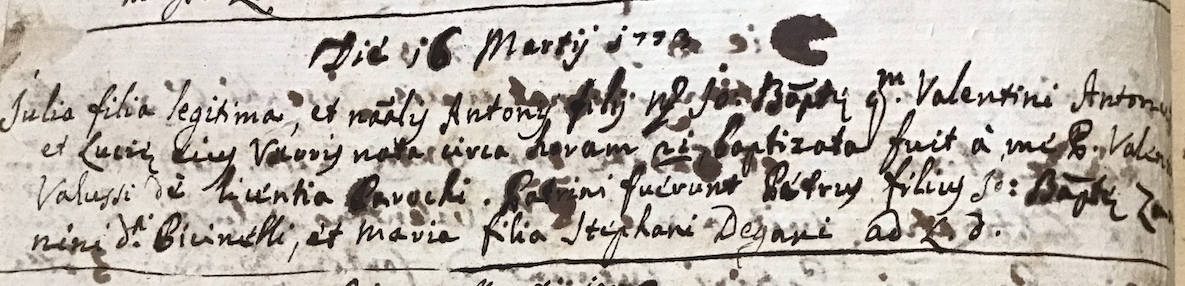 Die 16 Martij 177
Julia filia legitima, et nãalis Antonij filij Jo: Bãptę qm. Valentini Anton
et Lucię eius Uxoris nata circa horam baptizata fuit à me P. Valen
Valussi dè licentia Parochi. Patrini fuerunt Petrus filius Jo: Bãptę Za
nini di Bicinelli, et Maria filia Stephani Degani ad L. d.